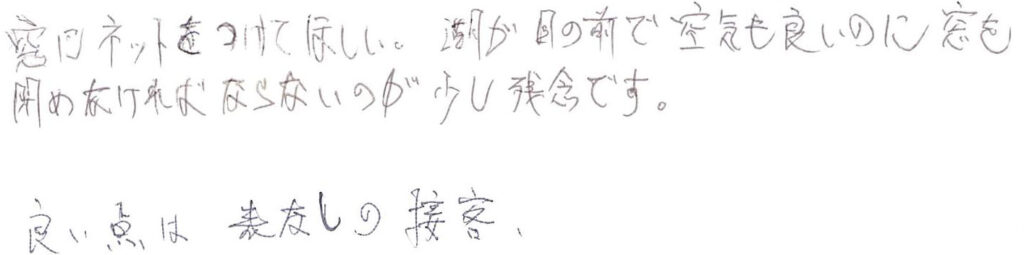 窓にネットをつけてほしい。湖が目の前で空気も良いのに窓を
閉めなければならないのが少し残念です。
良い点は 表なしの接客、